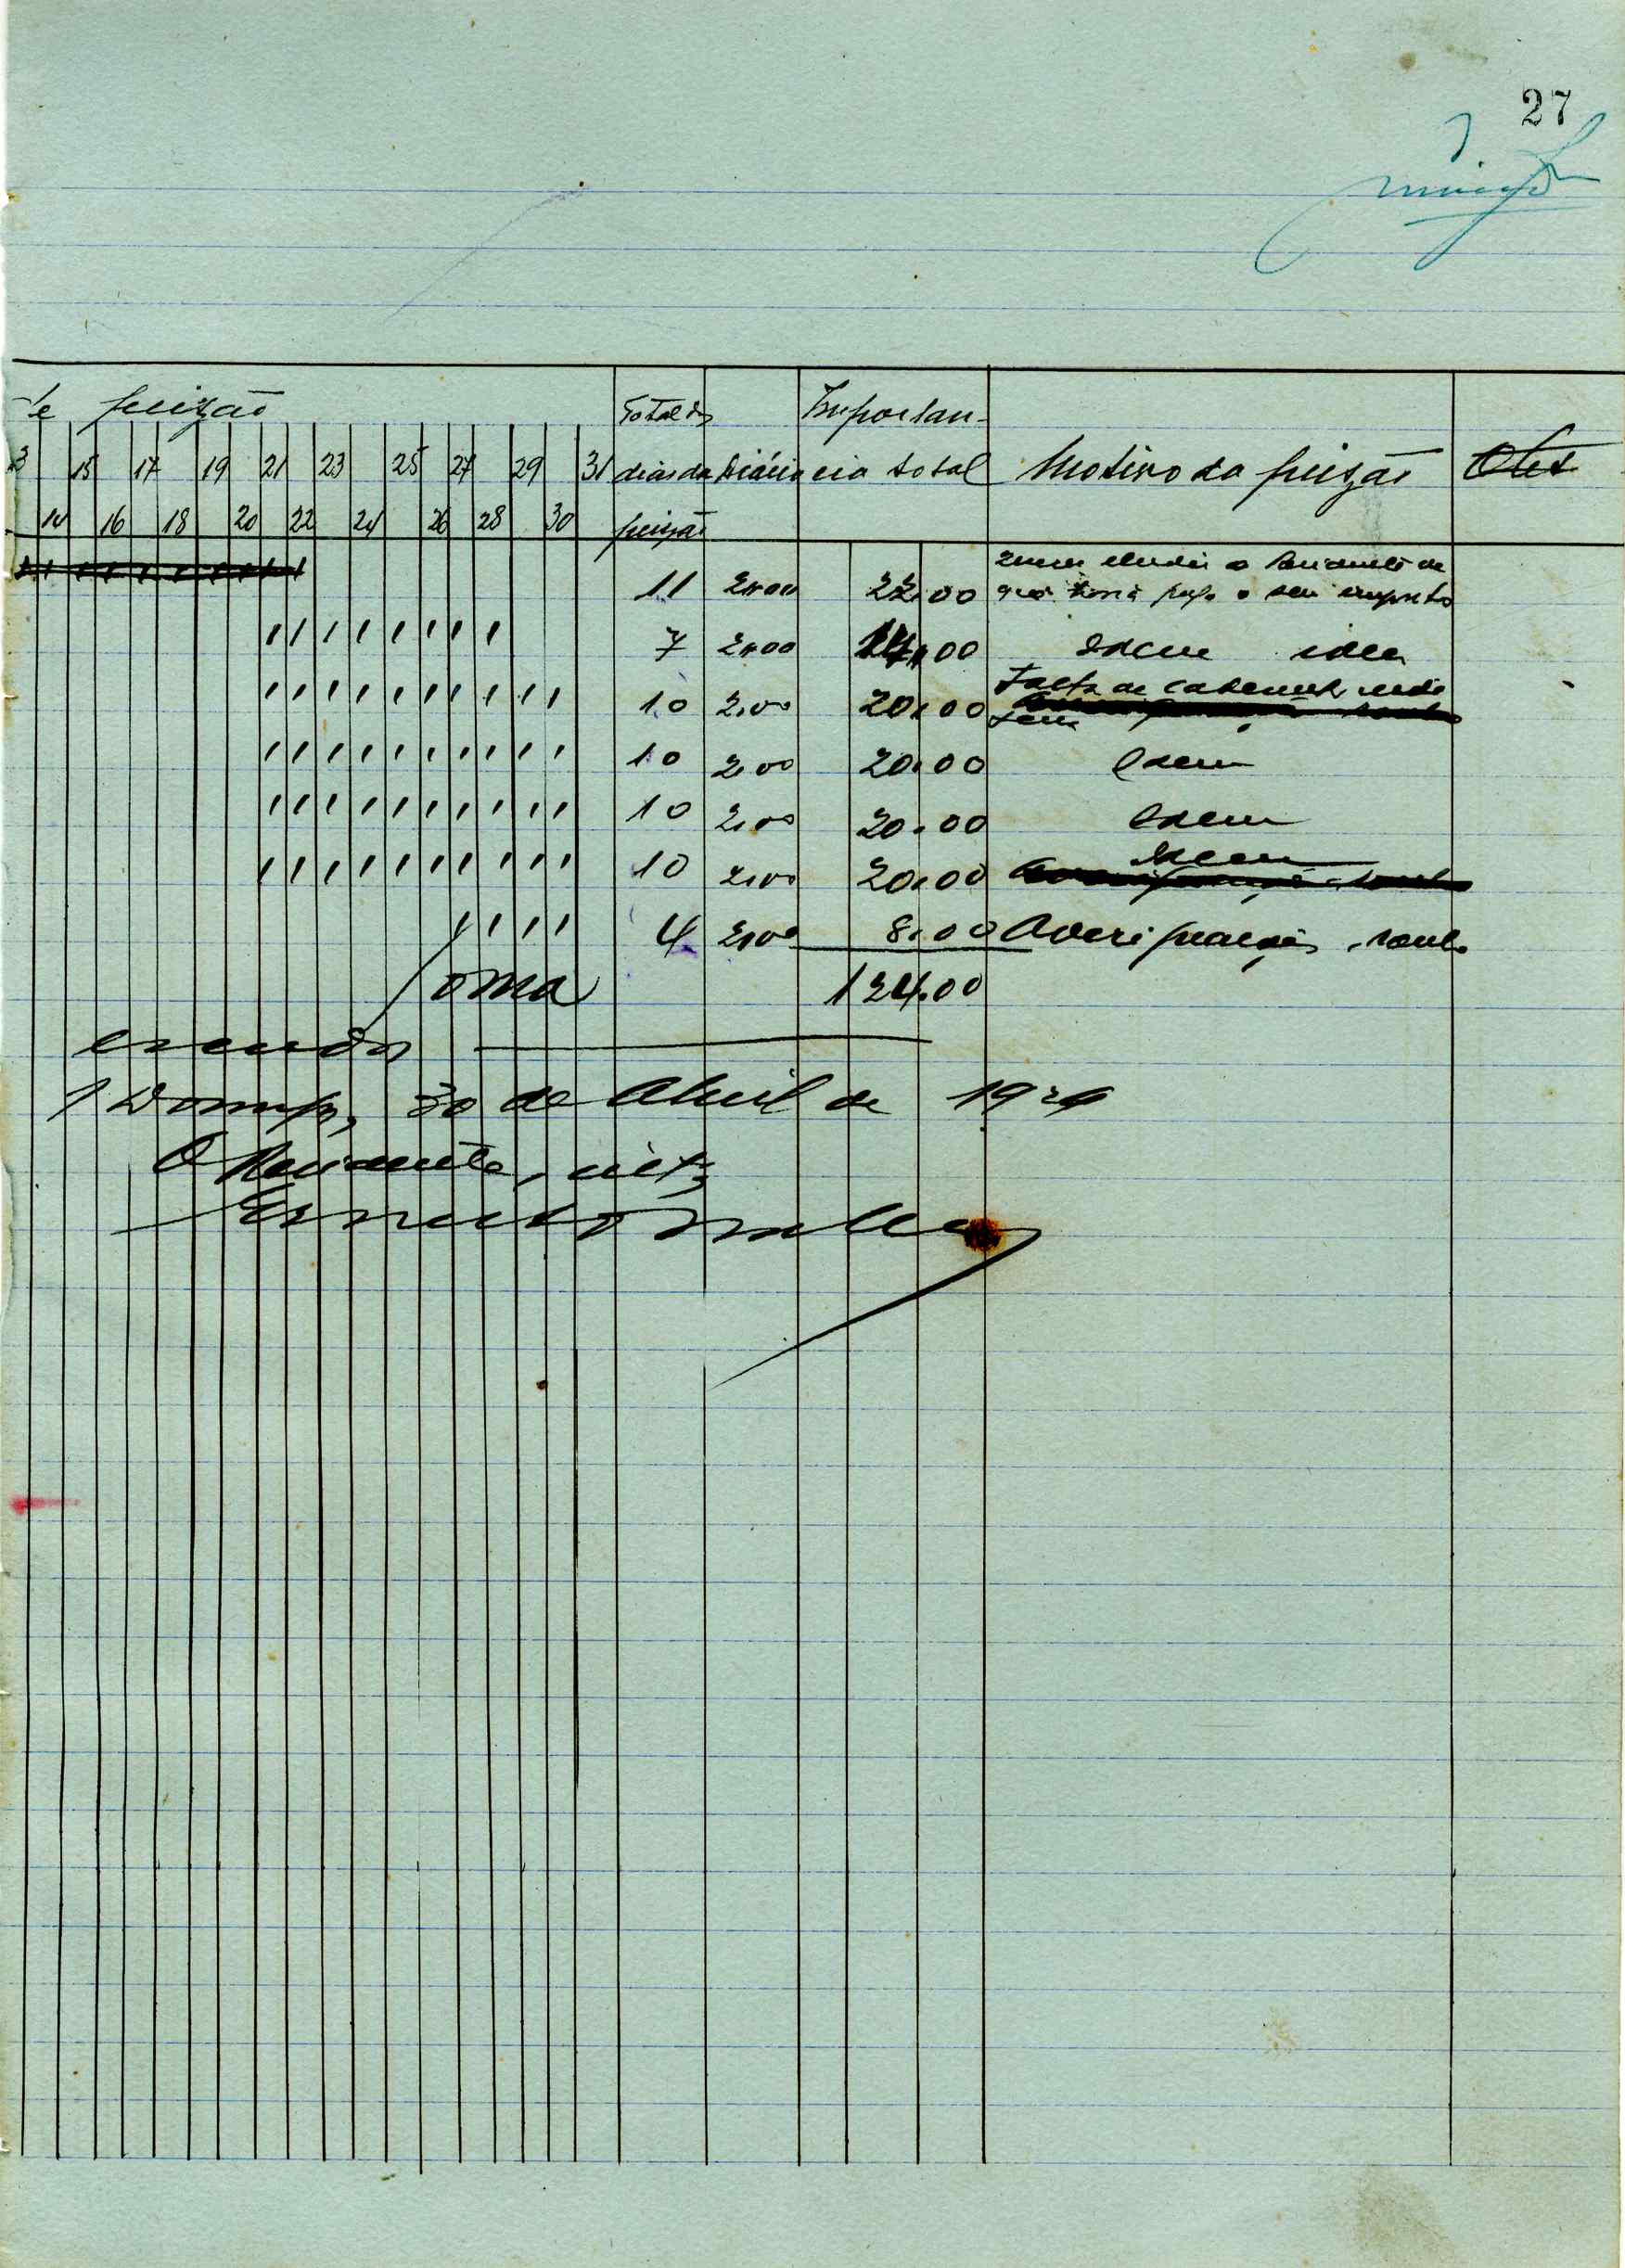 27
de prizão
Total de
Importan-
13 15 17 19 21 23 25 27 29 31
dias da
Diária
cia total
Motivo da prizão
Obs
14 16 18 20 22 24 26 28 30
prizão
11 2,00 22,00
que tinha pago o seu imposto
7 2,00 14,00 Idem idem
10 2,00 20,00 Falta de caderneta
10 2,00 20,00 Idem
10 2,00 20,00 Idem
10 2,00 20,00 Idem
4 2,00 8,00 Averiguações, roubo
Soma 124,00
escudos
30 de Abril de 1929
O Residente, int.º
Ernesto